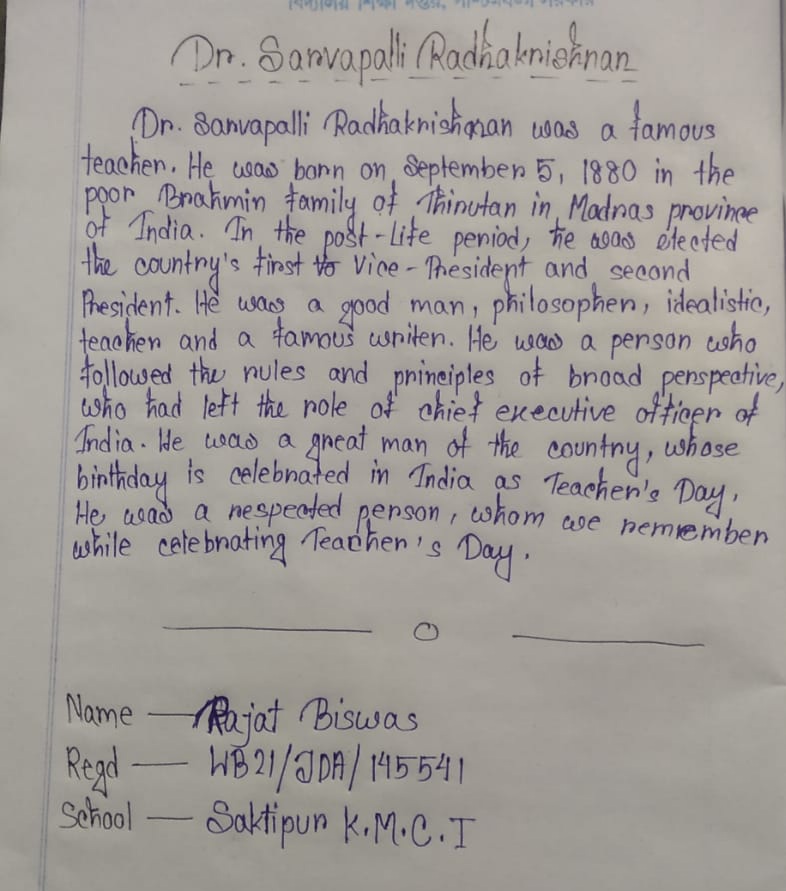 Dr. Sarvapalli Radhakrishnan
Dr. Sarvapalli Radhakrishanan was a famous
teacher. He was born on September 5, 1880 in the
poor Brahmin family of Thirutan in Madras province
of India. In the post-Life period, he was elected
the country's first Vice-President and second
President. He was a good man, philosopher, idealistic,
teacher and a famous writer. He was a person who
followed the rules and principles of broad perspective,
who had left the role of chief executive officer of
India. He was a great man of the country, whose
birthday is celebrated in India as Teacher's Day.
He was a respected person, whom we remember
while celebrating Teacher's Day.
Name — Rajat Biswas
Regd — WB21/JDA/145541
School — Saktipur K.M.C.I